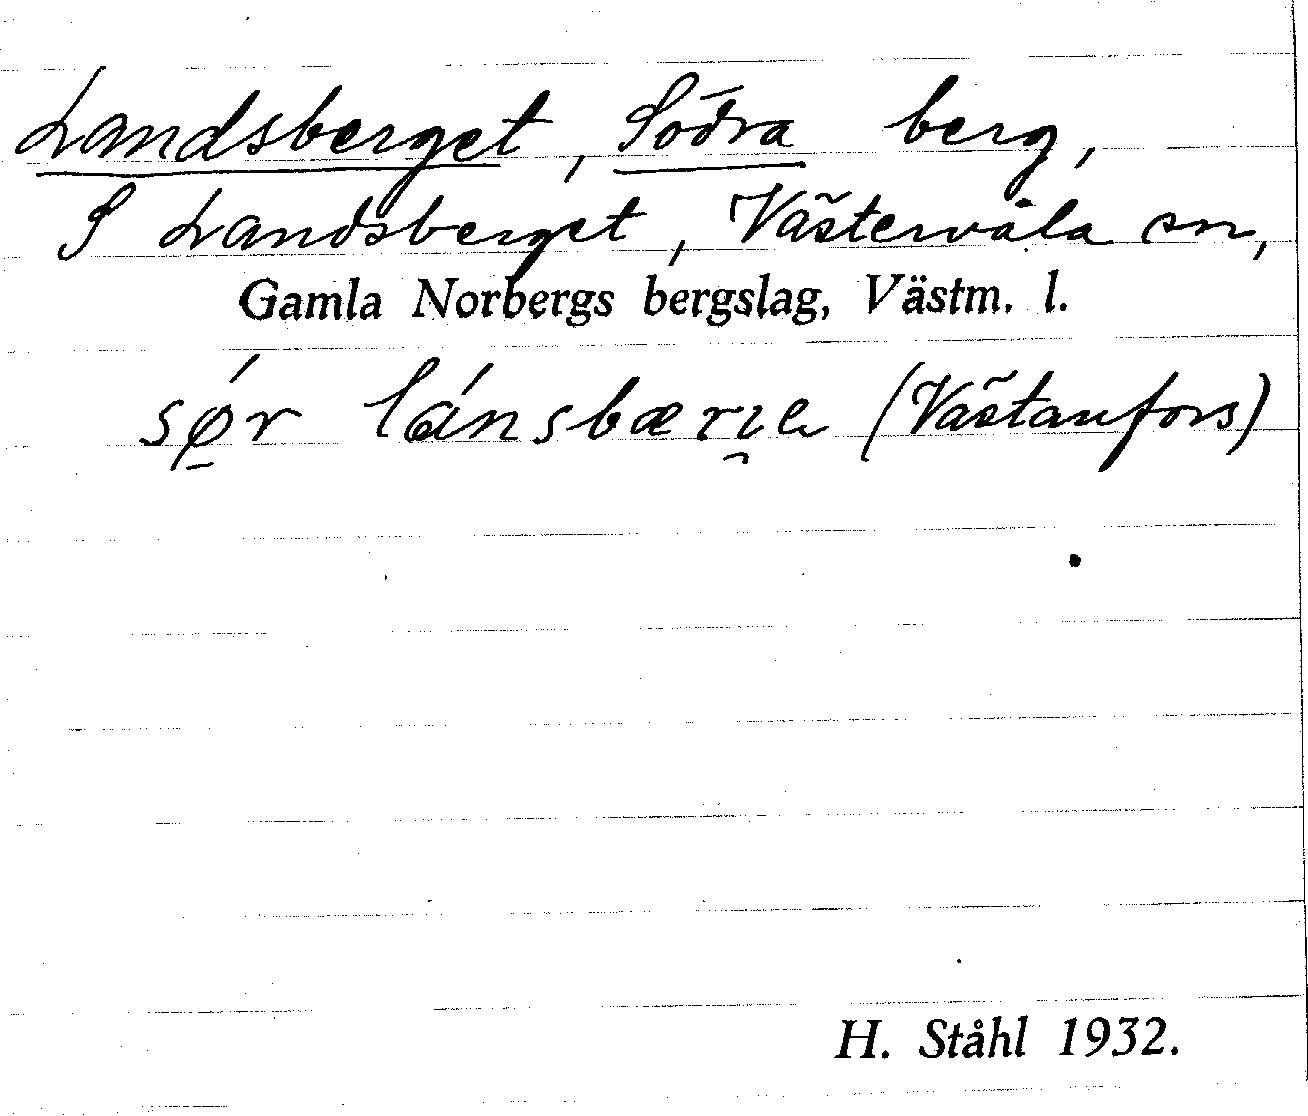 Landsberget, Södra berg,
S Landsberget, Västervåla sn,
Gamla Norbergs bergslag, Västm. l.
sǿ̱r lánsbærɪ̯e (Västanfors)
H. Ståhl 1932.